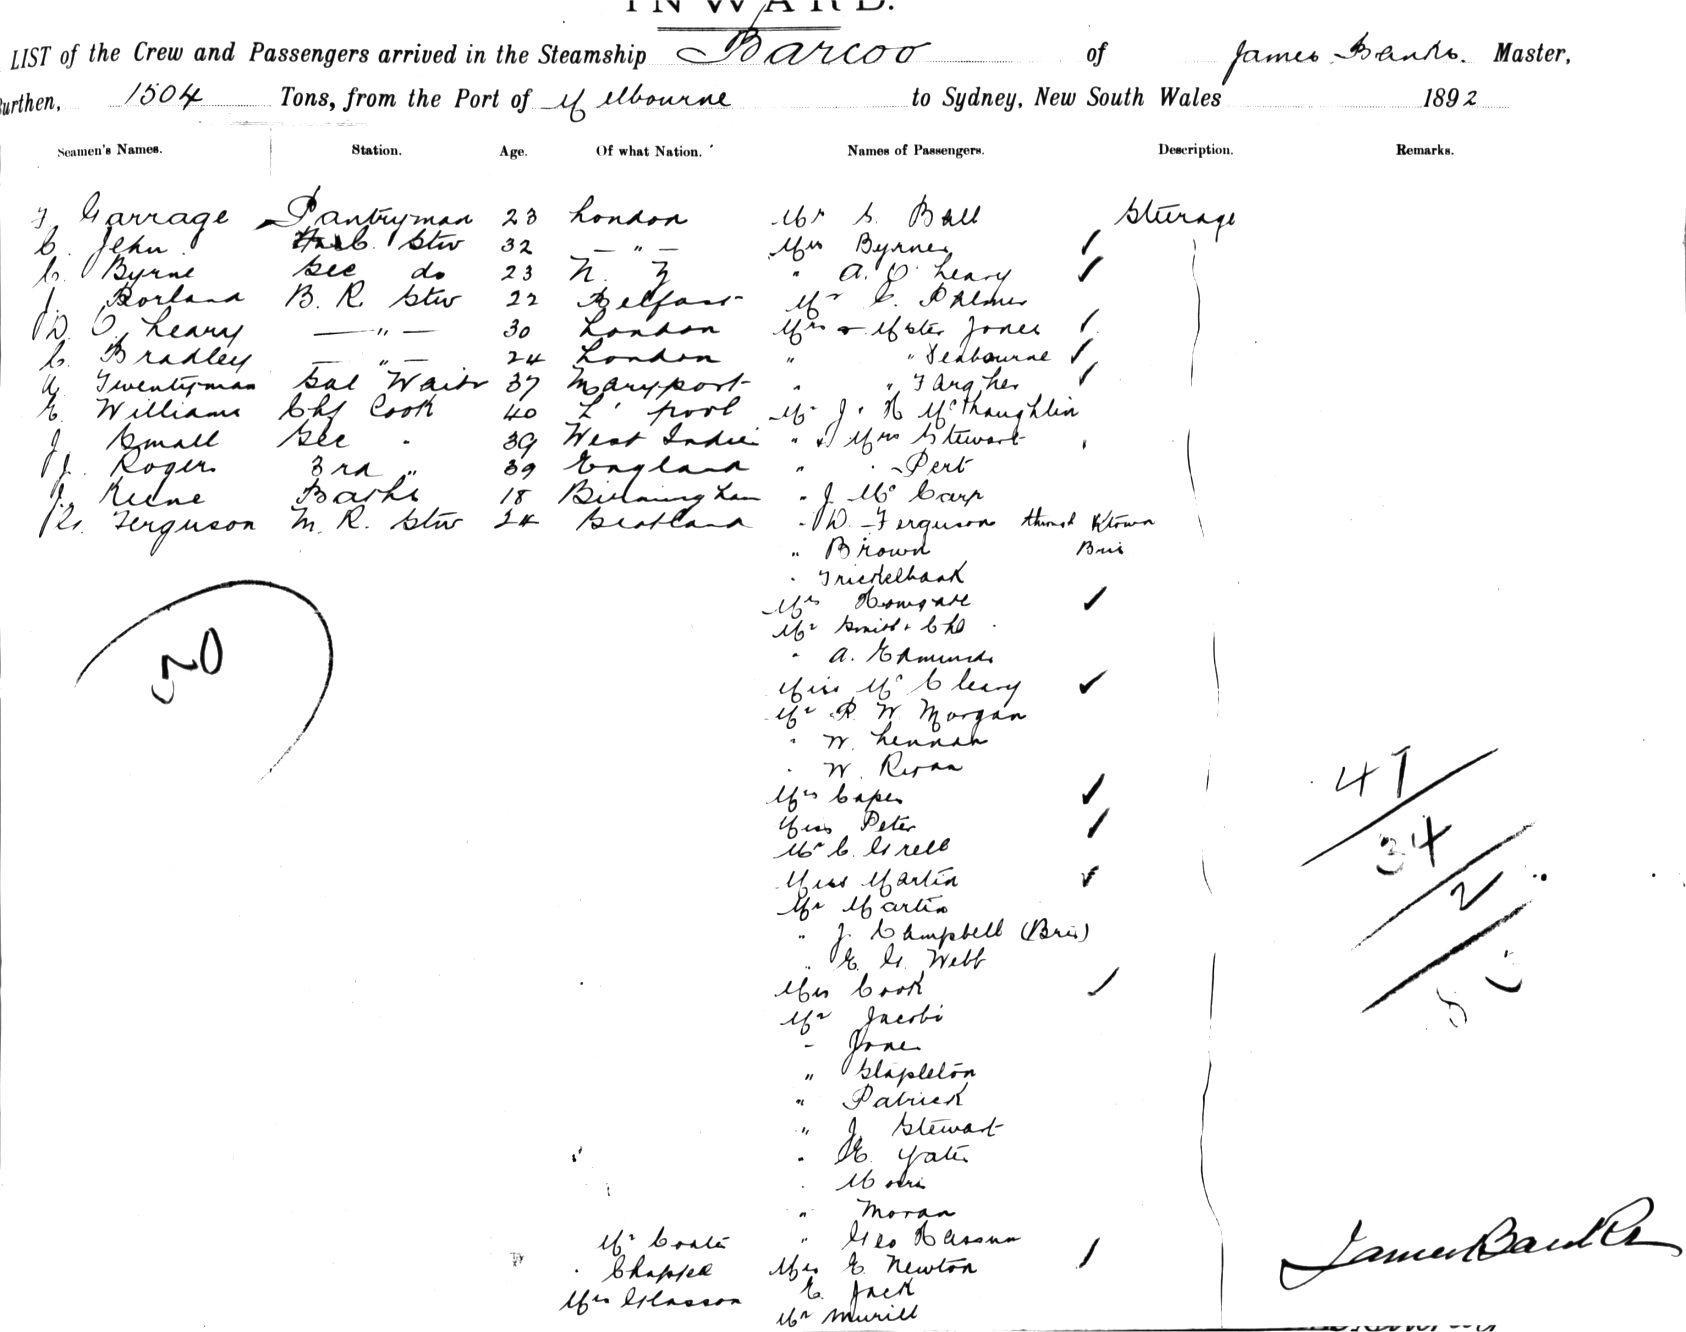 INWARD.
LIST of the Crew and Passengers arrived in the Steamship Barcoo of James Banks. Master,
Burthen, 1504 Tons, from the Port of Melbourne to Sydney, New South Wales 1892
Seamen's Names. Station. Age. Of what Nation. Names of Passengers. Description. Remarks.
Garrage Pantryman 23 London Mr S. Ball Steerage
C. Jehu Stw 32 — " — Mrs Byrnes ✓
C. Byrne Sec do 23 N. Z " A. O'Leary ✓
J. Borland B. R. Stw 22 Belfast Mr C. Palmer
D. O'Leary — " — 30 London Mrs & Mster Jones ✓
C. Bradley — " — 24 London " " Seabourne ✓
Twentyman Sal Waitr 37 Maryport " " Fargher ✓
E. Williams Chf Cook 40 L'pool Mr J. H McLhaughlin
J. Small Sec " 39 West Indies " & Mrs Stewart
J. Rogers 3rd " 39 England " Pert
J. Keene Barke 18 Birmingham " J. Mc Carp
G. Ferguson M. R. Stw 24 Scotland " D. Ferguson Ktown
" Brown Bris
" Friedelbaak
Mrs Howgate ✓
Mr Smith & Chd
" A. Edmunds
Miss McCleary ✓
Mr R. W. Morgan
" W. Lennan
" W.
Mrs Capes ✓
Miss Peter ✓
Mr C. Grell
Miss Martin ✓
Mr Martin
" J. Campbell (Bris)
" E. G. Webb
Mrs Cook ✓
Mr Jacobi
" Jones
" Stapleton
" Patrick
" J. Stewart
" E. Yates
"
" Moran
Mr Coate " Geo
" Chappel Mrs E. Newton ✓
Mrs Glasson E. Jack
Mr Murill
30
47
34
2
James Banks